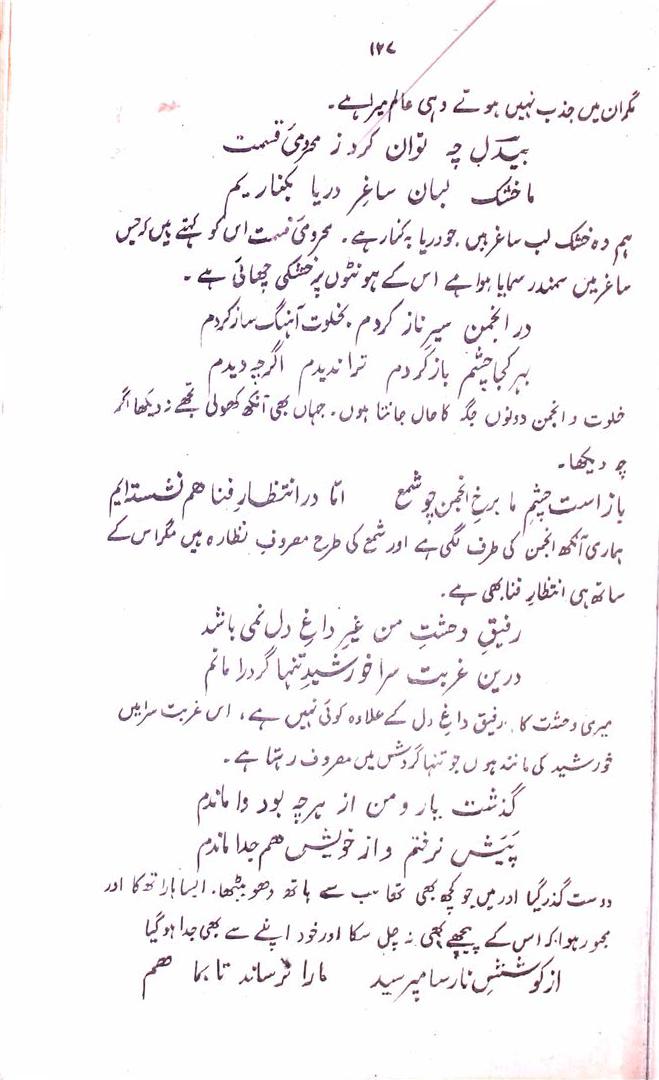 ۱۲۷
مگر ان میں جذب نہیں ہوتے وہی عالم میرا ہے۔
بیدل چہ توان کرد ز محرومیٔ قسمت
ما خشک لبان ساغرِ دریا بکناریم
ہم وہ خشک لب ساغر ہیں جو دریا بہ کنار ہے۔ محرومیٔ قسمت اس کو کہتے ہیں کہ جس
ساغر میں سمندر سمایا ہوا ہے اس کے ہونٹوں پر خشکی چھائی ہے ۔
در انجمن سیرِ ناز کردم بخلوت آہنگ ساز کردم
بہر کجا چشم باز کردم ترا ندیدم اگرچہ دیدم
خلوت و انجمن دونوں جگہ کا حال جانتا ہوں۔ جہاں بھی آنکھ کھولی تجھے نہ دیکھا اگر
چہ دیکھا۔
باز است چشمِ ما برخِ انجمن چو شمع امّا در انتظارِ فنا هم نشسته ایم
ہماری آنکھ انجمن کی طرف لگی ہے اور شمع کی طرح مصروفِ نظارہ ہیں مگر اس کے
ساتھ ہی انتظارِ فنا بھی ہے۔
رفیقِ وحشتِ من غیرِ داغِ دل نمی باشد
درین غربت سرا خورشیدِ تنہا گرد را مانم
میری وحشت کا رفیق داغِ دل کے علاوہ کوئی نہیں ہے، اس غربت سرا میں
خورشید کی مانند ہوں جو تنہا گردش میں مصروف رہتا ہے۔
گذشت یار و من از ہرچہ بود وا ماندم
پَیَش نرفتم و از خویش هم جدا ماندم
دوست گذر گیا اور میں جو کچھ بھی تھا سب سے ہاتھ دھو بیٹھا۔ ایسا ہارا تھکا اور
مجبور ہوا کہ اس کے پیچھے بھی نہ چل سکا اور خود اپنے سے بھی جدا ہو گیا
از کوششِ نارسا مپرسید ما را نرساند تا بما هم